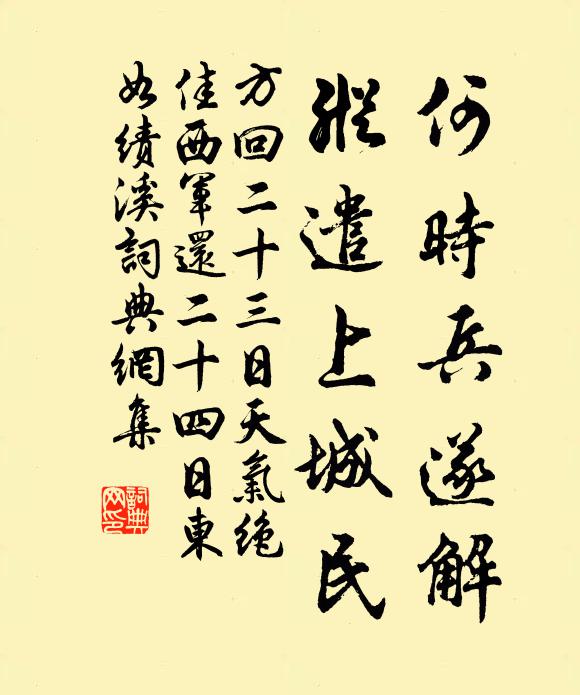 何時兵遂解
縱遣上城民
方回二十三日天氣絶
佳西軍還二十四日東
如績溪詞典網集
詞典
网印